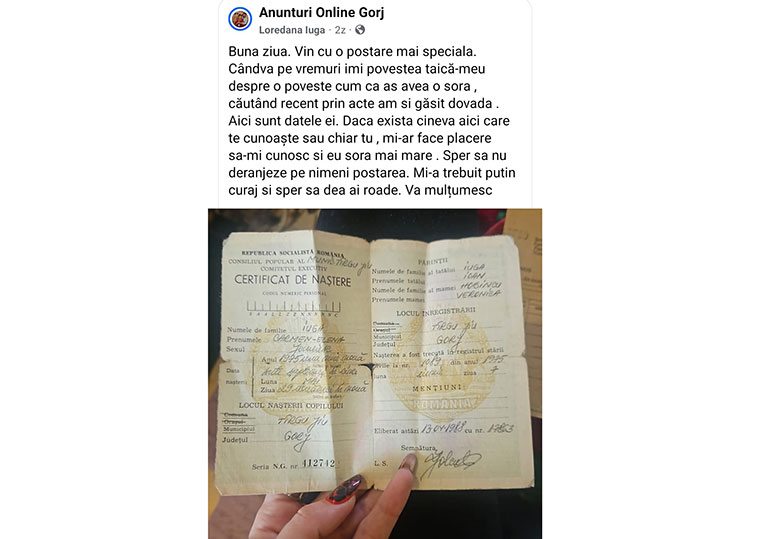 Anunturi Online Gorj
Loredana Iuga · 2z ·
Buna ziua. Vin cu o postare mai speciala.
Cândva pe vremuri imi povestea taică-meu
despre o poveste cum ca as avea o sora ,
căutând recent prin acte am si găsit dovada .
Aici sunt datele ei. Daca exista cineva aici care
te cunoaște sau chiar tu , mi-ar face placere
sa-mi cunosc si eu sora mai mare . Sper sa nu
deranjeze pe nimeni postarea. Mi-a trebuit putin
curaj si sper sa dea ai roade. Va mulțumesc
REPUBLICA SOCIALISTĂ ROMÂNIA
CONSILIUL POPULAR AL MUNIC. TÎRGU JIU
COMITETUL EXECUTIV
CERTIFICAT DE NAȘTERE
CODUL NUMERIC PERSONAL
Numele de familie IUGA
Prenumele CARMEN-ELENA
Sexul
Anul 1975
Data
nașterii
Luna
Ziua 29
LOCUL NAȘTERII COPILULUI
Comuna
Orașul
Municipiul TÂRGU JIU
Județul GORJ
Seria N.G. nr. 412742
PĂRINȚII
Numele de familie al tatălui IUGA
Prenumele tatălui IOAN
Numele de familie al mamei
Prenumele mamei VERONICA
LOCUL ÎNREGISTRĂRII
Comuna
Orașul
Municipiul TÂRGU JIU
Județul GORJ
Nașterea a fost trecută în registrul stării
civile la nr. 1019 din anul 1975
luna iunie ziua 7
MENȚIUNI
ROMÂNIA
Eliberat astăzi 13.04.1988 cu nr.
Semnătura,
L. S.